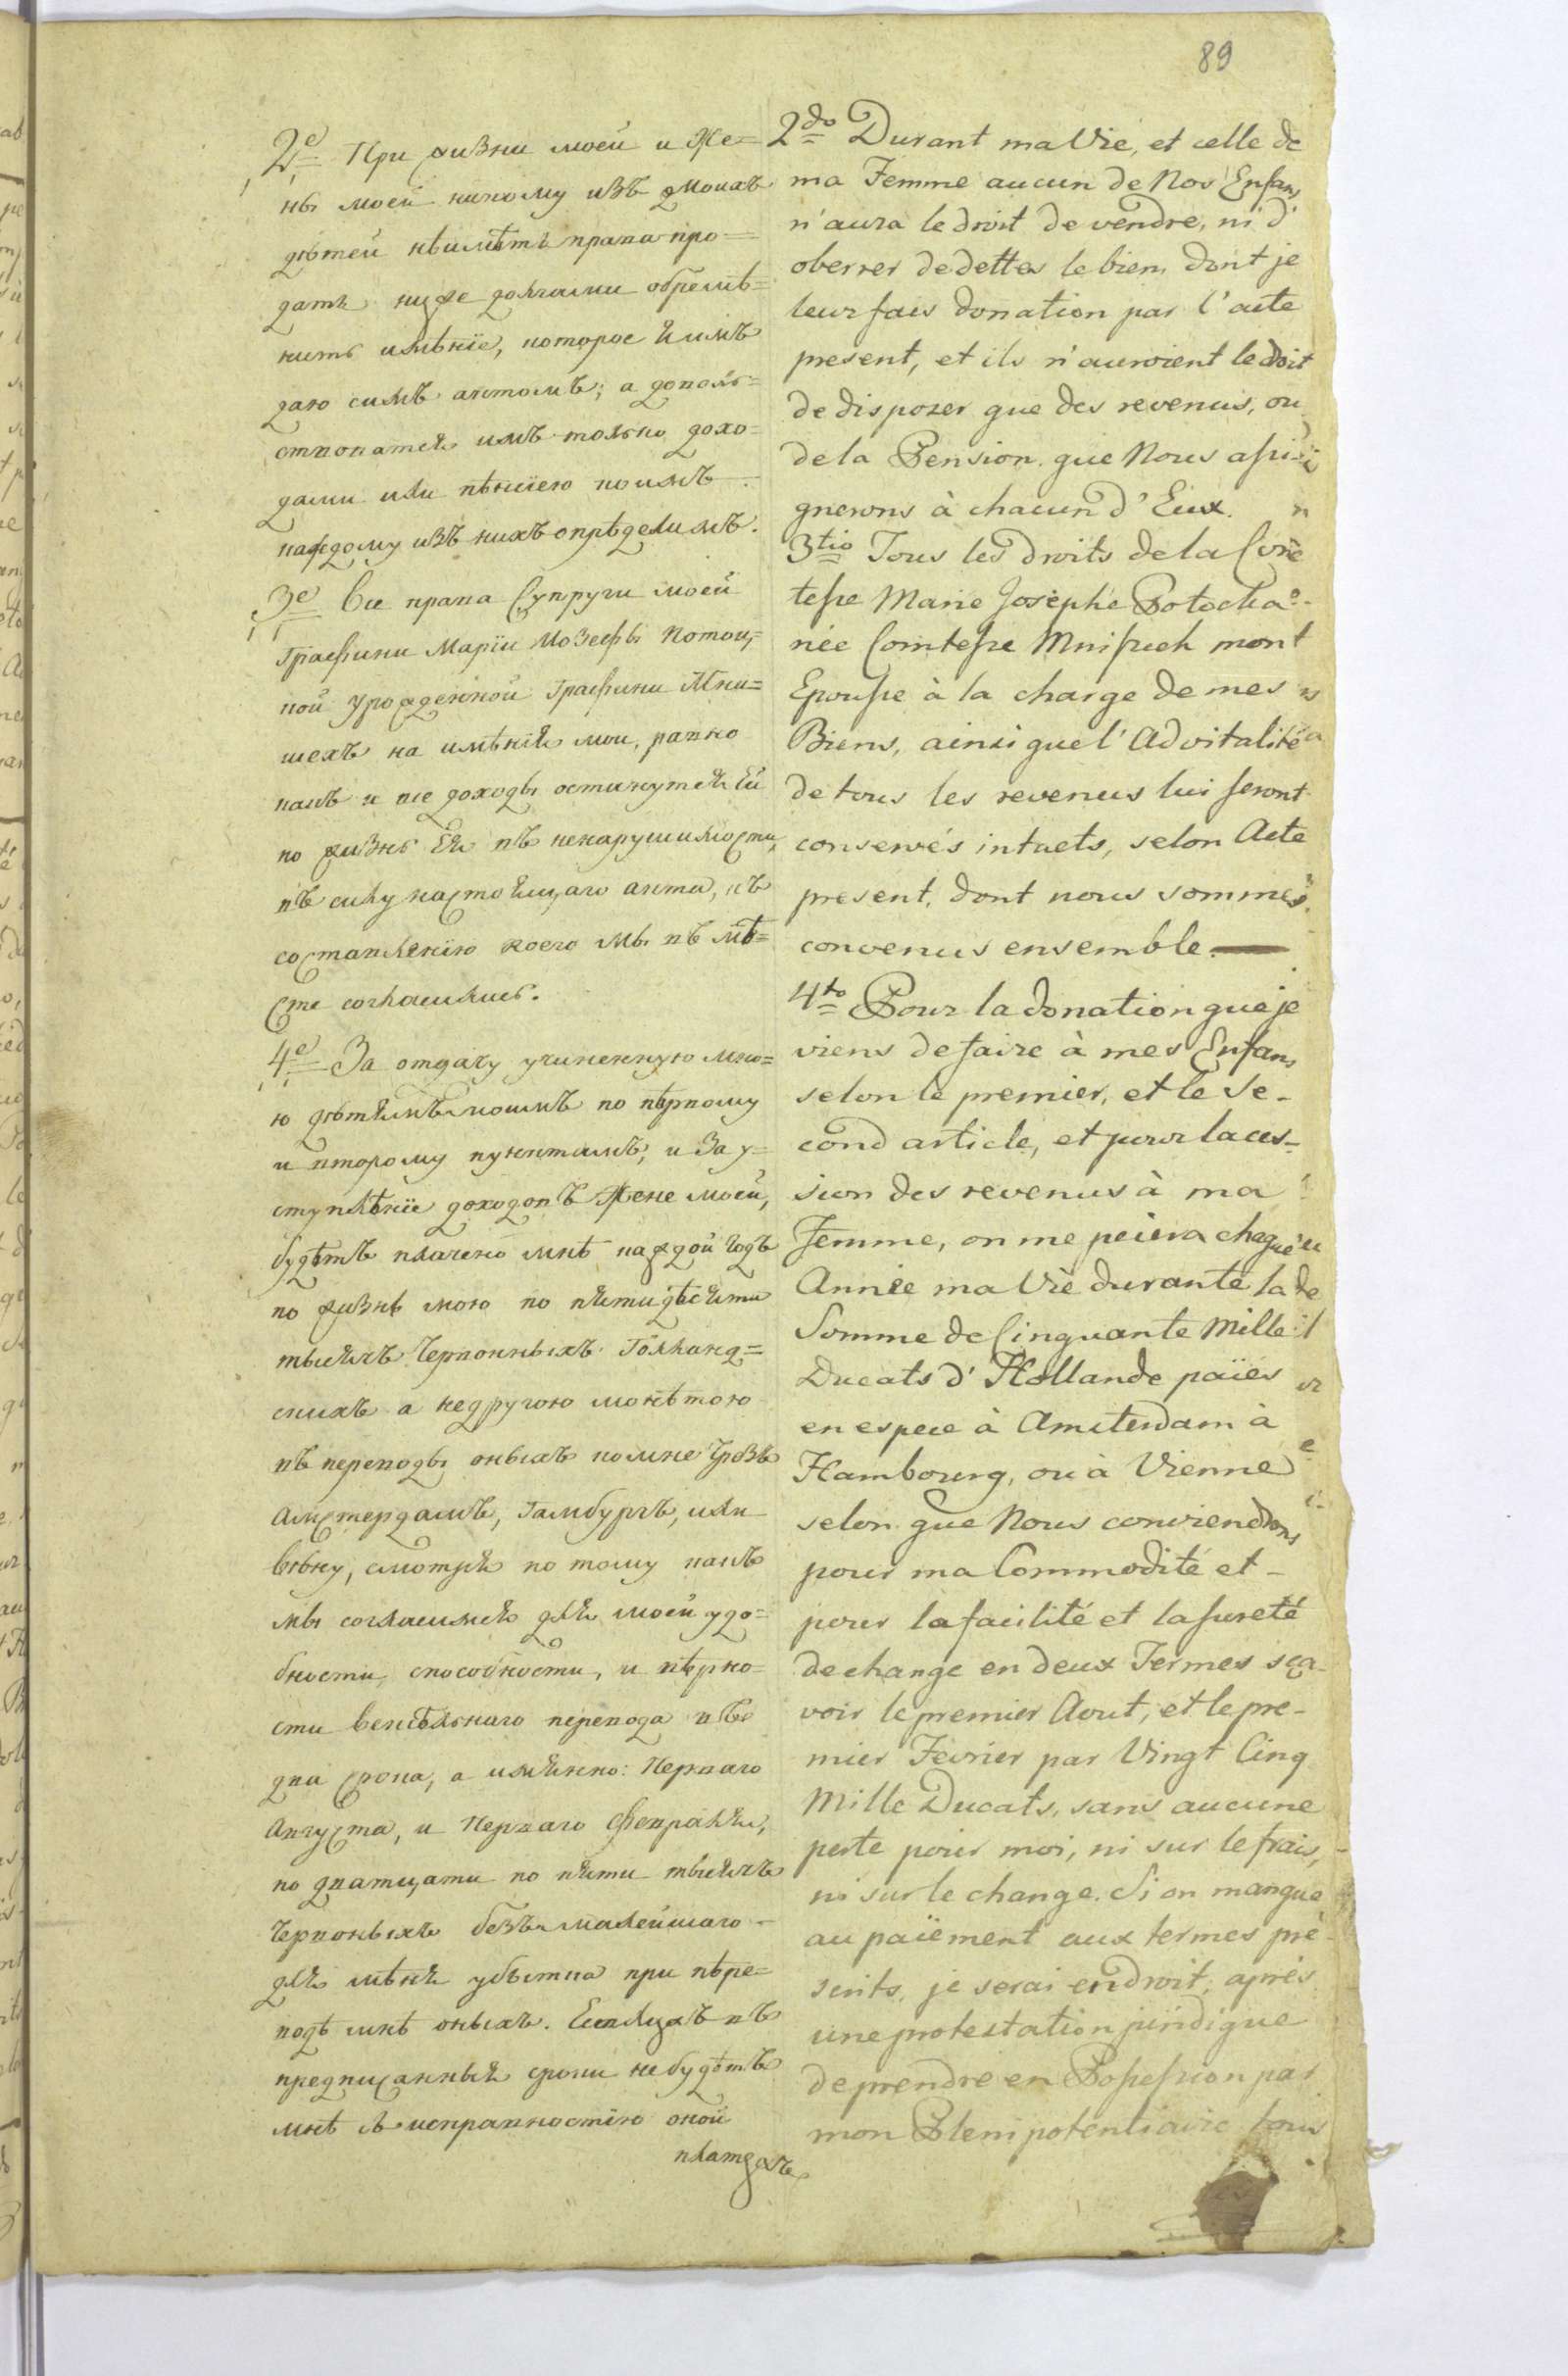 89
2е При жизни моей и Же=
ны моей никому изъ моихъ
дѣтей нѣимѣть права про=
дать ниже долгами обремѣ=
нить имѣніе, которое я имъ
даю симъ актомъ; а доволь=
ствоватся имъ только дохо=
дами или пѣнсіею коимъ
каждому изъ нихъ опрѣделимъ.
3е Все права Супруги моей
Графини Маріи Іозефы Потоц=
кой урожденной Графини Мни=
шехъ на имѣнія мои, равно
какъ и все доходы останутся Ей
по жизнь Ея въ ненарушимости,
въ силу настоящаго акта, къ
составленію коего мы въ мѣ=
сте согласились.
4е За отдачу учиненную мно=
ю дѣтямъ моимъ по пѣрвому
и второму пунктамъ, и за у=
ступлѣніе доходовъ Жене моей,
будѣтъ плачено мнѣ каждой годъ
по жизнь мою по пятидѣсяти
тысячъ Червонныхъ Голланд=
скихъ а недругою монѣтою
въ переводы оныхъ комне чрѣзъ
Амстердамъ, Гамбургъ, или
Вѣну, смотря по тому какъ
мы согласимся для моей удо=
бности, способности, и вѣрно=
сти Вексѣльнаго перевода въ
два срока, а имянно: Перваго
Августа, и Перваго Февраля,
по дватцати по пяти тысячъ
Червоныхъ безъ малейшаго
для мѣня убытка при пѣре=
водѣ мнѣ оныхъ. Естлижъ въ
предписанныя сроки не будѣтъ
мнѣ съ исправностію оной
платежъ
2do Durant ma Vie, et celle de
ma Femme aucun de Nos Enfans
n'aura le droit de vendre, ni d'
oberrer de dettes le bien, dont je
leur fais donation par l'acte
present, et ils n'auroient le droit
de disposer que des revenus, ou
de la Pension que Nous assi-
gnerons à chacun d'Eux.
3tio Tous les droits de la Com
tesse Marie Josephe Potocka
née Comtesse Mnissech mon
Epouse à la charge de mes
Biens, ainsi que l'Advitalité
de tous les revenus lui seront
conservés intacts, selon Acte
present, dont nous sommes
convenus ensemble.
4to Pour la donation que je
viens de faire à mes Enfans
selon le premier, et le Se-
cond article, et pour la ces-
sion des revenus à ma
Femme, on me païera chaque
Année ma Vie durante la
Somme de Cinquante Mille
Ducats d'Hollande païés
en espece à Amsterdam à
Hambourg, ou à Vienne
selon que Nous conviendrons
pour ma Commodité et -
pour la facilité et la sureté
de change en deux Termes sça-
voir le premier Aout, et le pre-
mier Fevrier par Vingt Cinq
Mille Ducats, sans aucune
perte pour moi, ni sur le frais,
ni sur le change. Si on manque
au païement aux termes pre-
scrits, je serai en droit, après
une protestation juridique
de prendre en Possession par
mon Plenipotentiaire tous